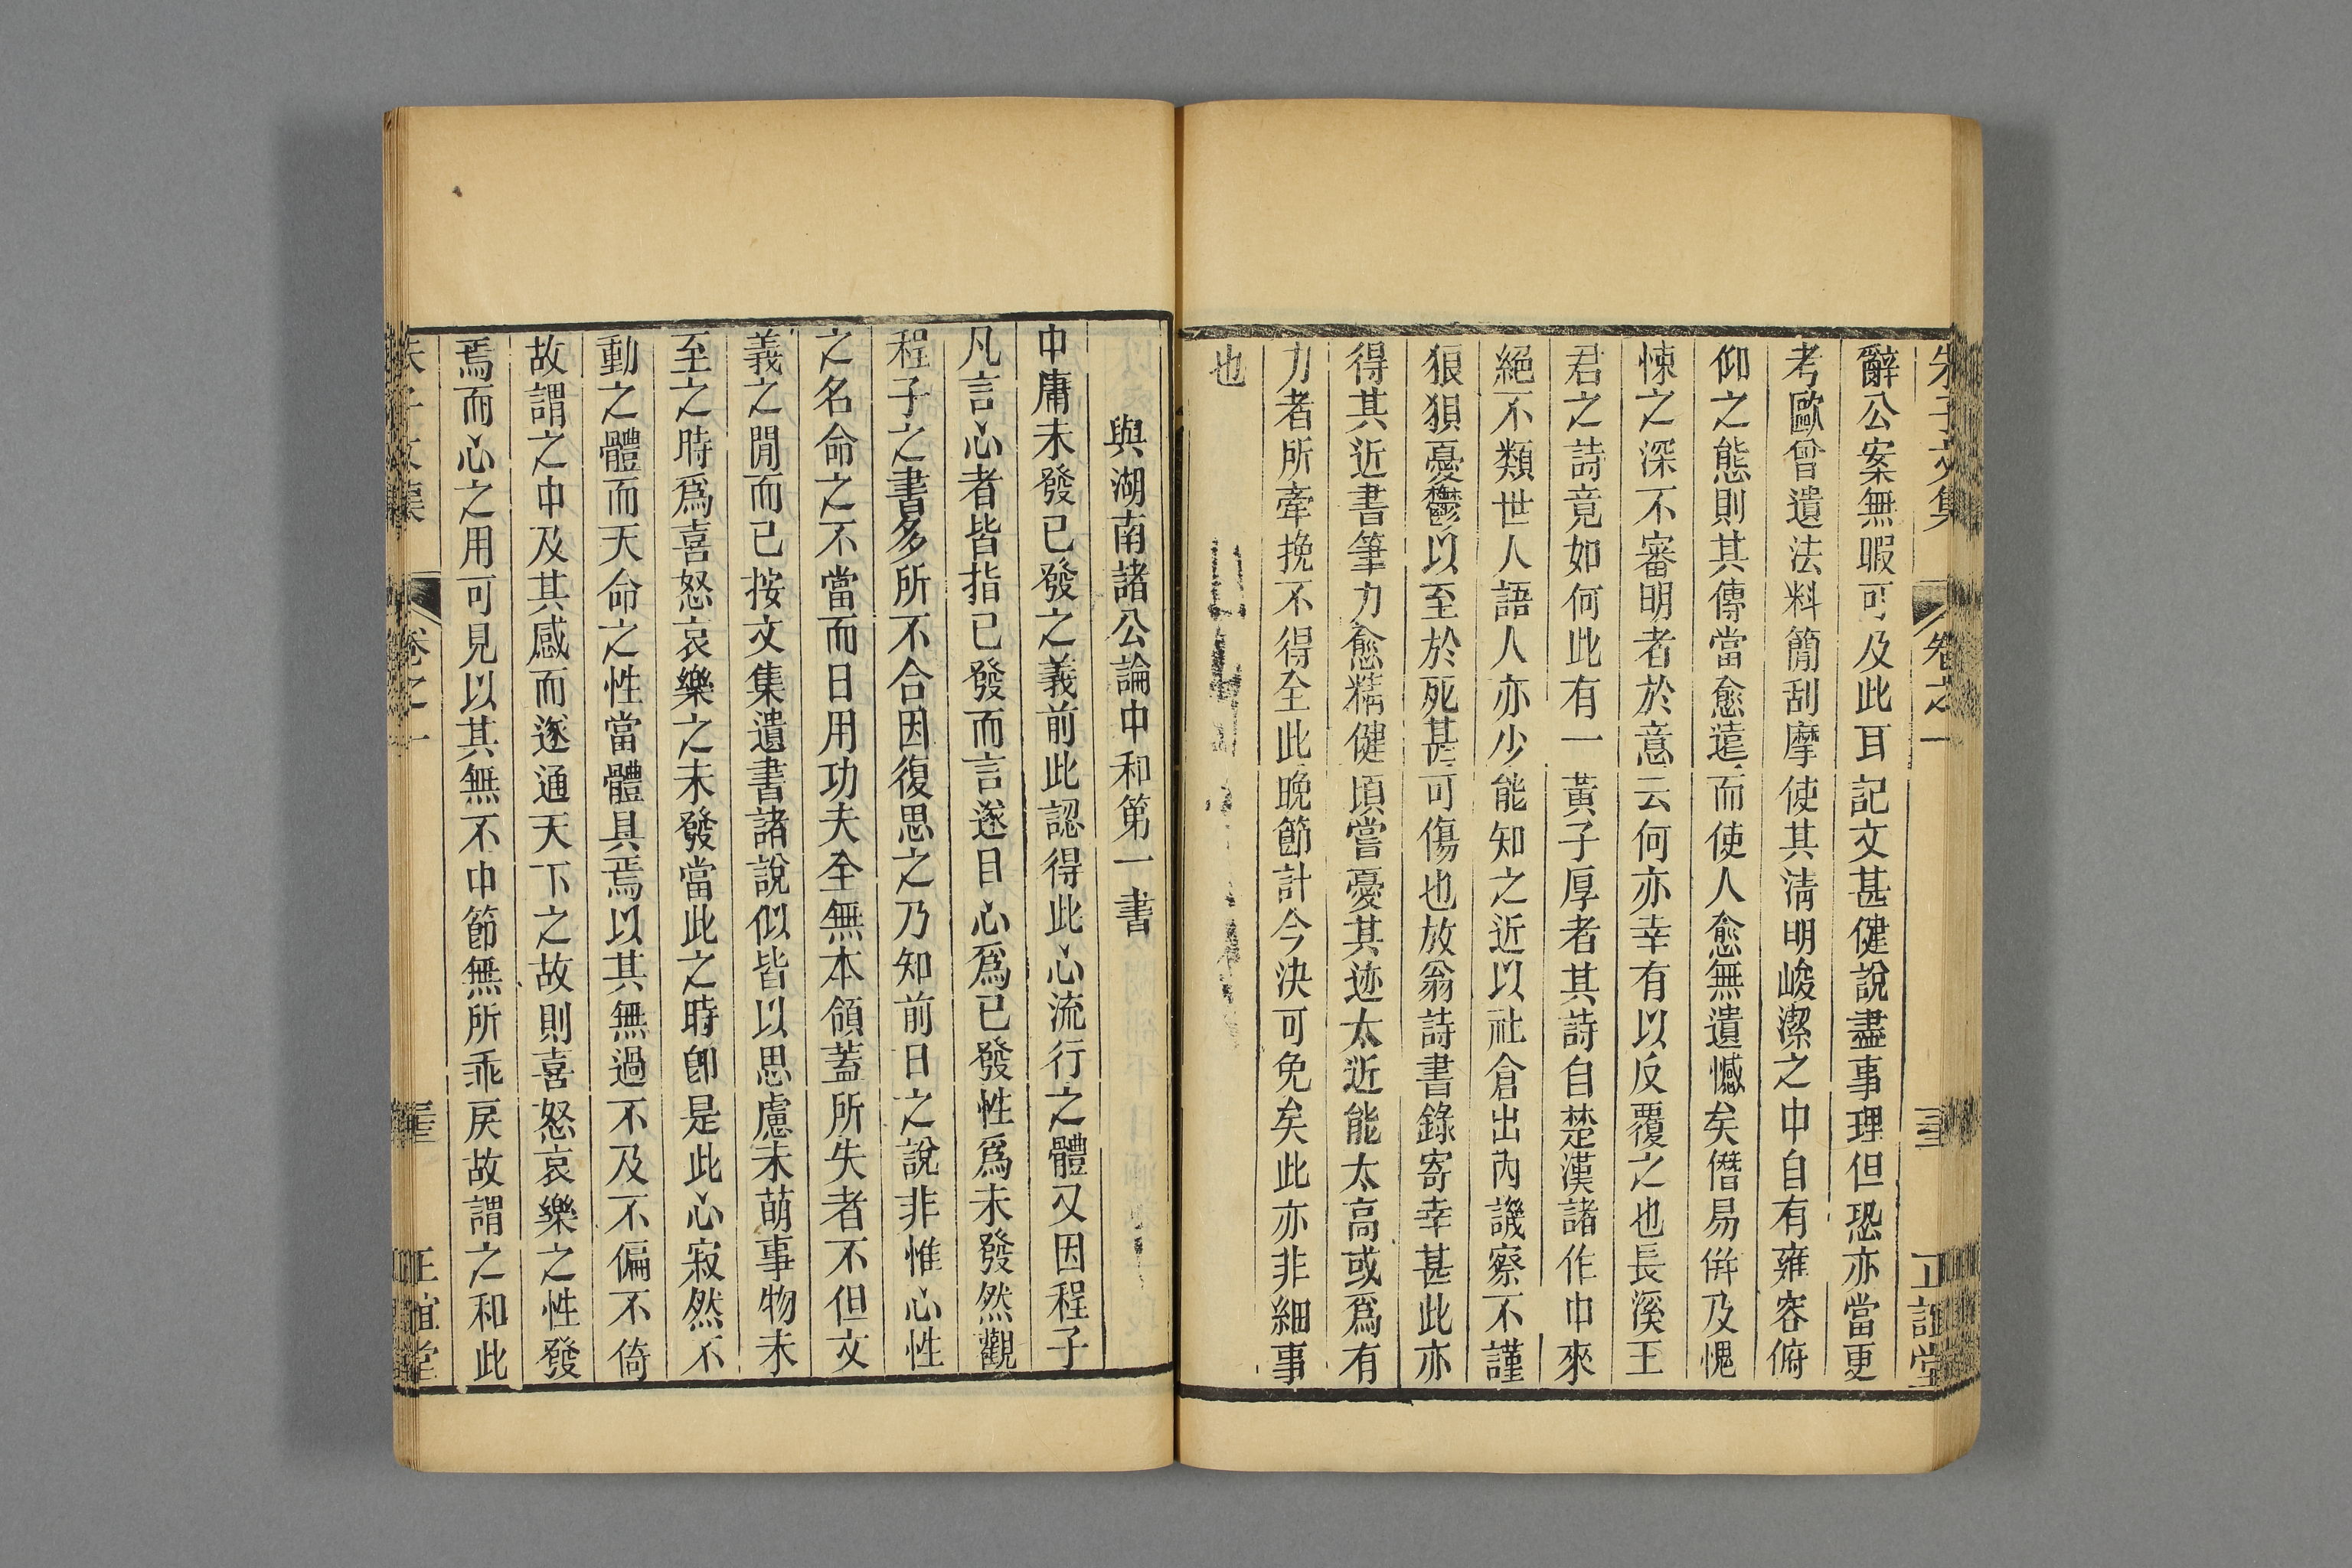 朱子文集 卷之一 三 正誼堂
辭公案無暇可及此耳記文甚健說盡事理但恐亦當更
考歐曾遺法料簡刮摩使其清明峻潔之中自有雍容俯
仰之態則其傳當愈遠而使人愈無遺憾矣僭易併及愧
悚之深不審明者於意云何亦幸有以反覆之也長溪王
君之詩竟如何此有一黃子厚者其詩自楚漢諸作中來
絕不類世人語人亦少能知之近以社倉出內譏察不謹
狼狽憂鬱以至於死甚可傷也放翁詩書錄寄幸甚此亦
得其近書筆力愈精健頃嘗憂其迹太近能太高或爲有
力者所牽挽不得全此晚節計今決可免矣此亦非細事
也
與湖南諸公論中和第一書
中庸未發已發之義前此認得此心流行之體又因程子
凡言心者皆指已發而言遂目心爲已發性爲未發然觀
程子之書多所不合因復思之乃知前日之說非惟心性
之名命之不當而日用功夫全無本領蓋所失者不但文
義之閒而已按文集遺書諸說似皆以思慮未萌事物未
至之時爲喜怒哀樂之未發當此之時卽是此心寂然不
動之體而天命之性當體具焉以其無過不及不偏不倚
故謂之中及其感而遂通天下之故則喜怒哀樂之性發
焉而心之用可見以其無不中節無所乖戾故謂之和此
朱子文集 卷之一 正誼堂